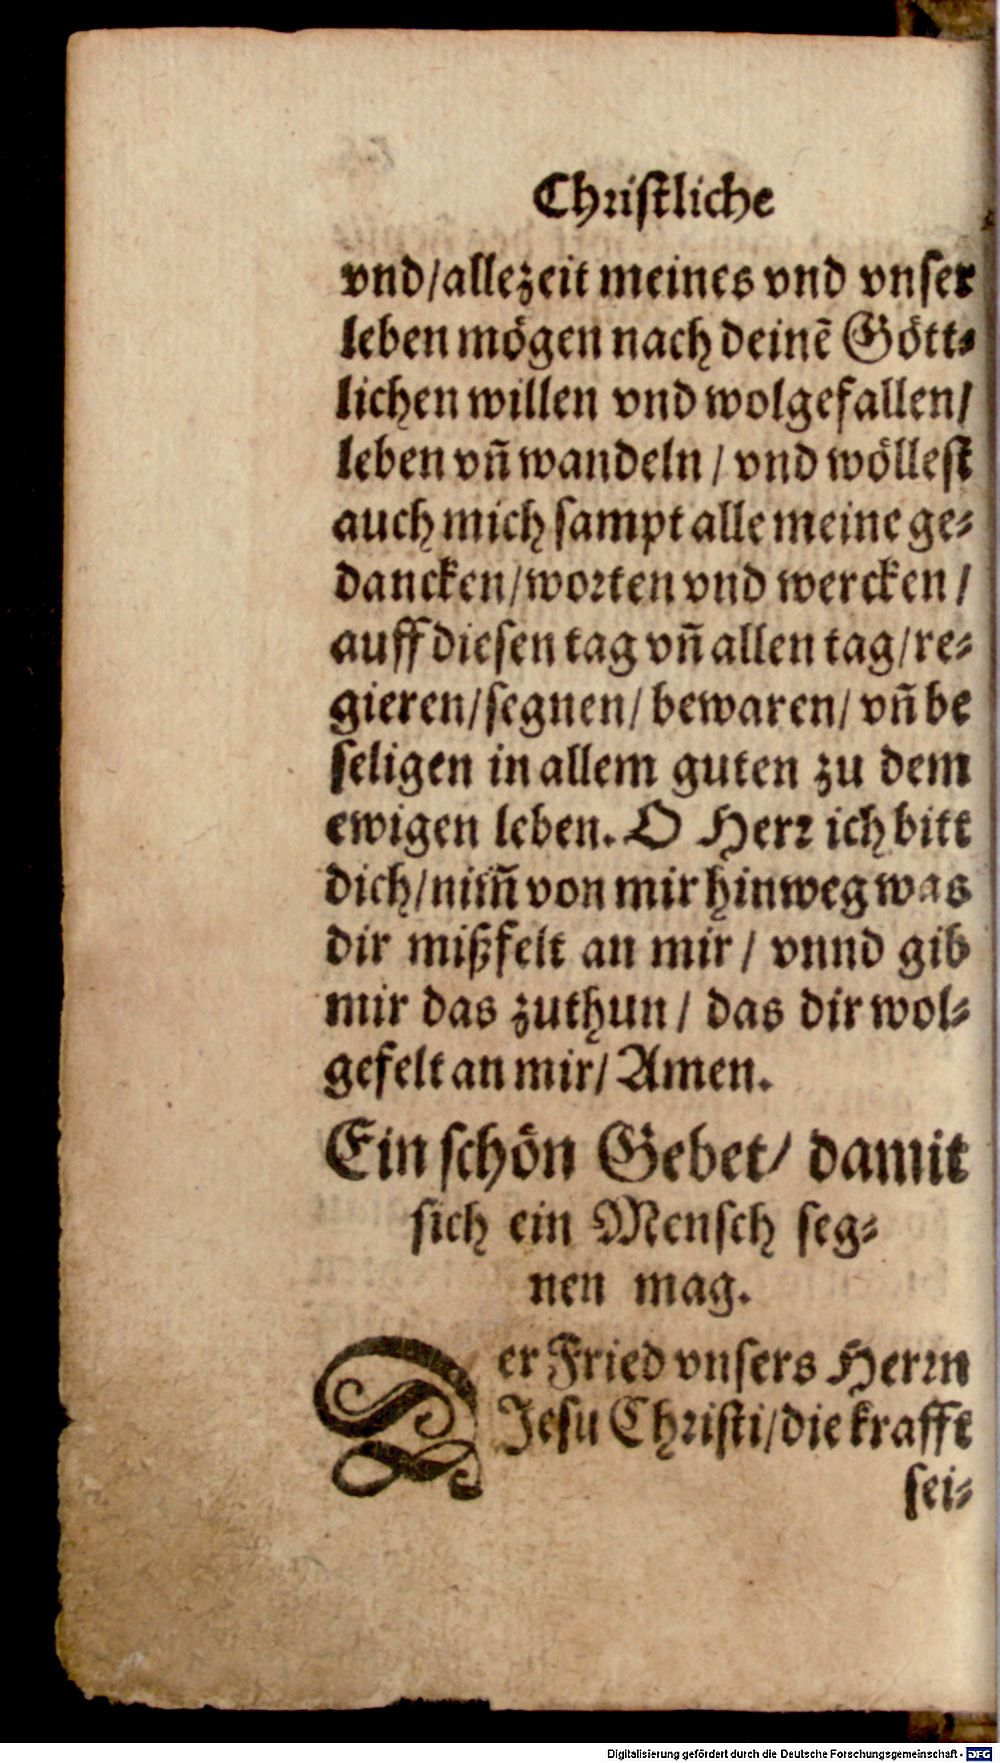 Christliche
vnd/allezeit meines vnd vnser
leben mögen nach deinẽ Gött-
lichen willen vnd wolgefallen/
leben vñ wandeln / vnd wöllest
auch mich sampt alle meine ge-
dancken/worten vnd wercken /
auff diesen tag vñ allen tag/re-
gieren/segnen/ bewaren/ vñ be
seligen in allem guten zu dem
ewigen leben. O Herr ich bitt
dich/nim̃ von mir hinweg was
dir mißfelt an mir / vnnd gib
mir das zuthun / das dir wol-
gefelt an mir/ Amen.
Ein schön Gebet/ damit
sich ein Mensch seg-
nen mag.
Der Fried vnsers Herrn
Jesu Christi/die krafft
sei-
Digitalisierung gefördert durch die Deutsche Forschungsgemeinschaft - DFG